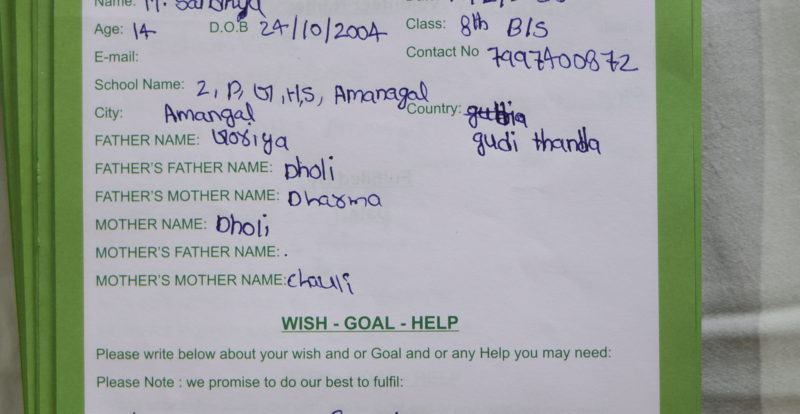 Name: M. Sandhya
Age: 14 D.O.B 24/10/2004 Class: 8th B/S
E-mail: Contact No 7997400872
School Name: Z, P, G, H, S, Amanagal
City: Amangal Country:
gudi thanda
FATHER NAME:
FATHER'S FATHER NAME: Dholi
FATHER'S MOTHER NAME: Dharma
MOTHER NAME: Dholi
MOTHER'S FATHER NAME: .
MOTHER'S MOTHER NAME: chauli
WISH - GOAL - HELP
Please write below about your wish and or Goal and or any Help you may need:
Please Note : we promise to do our best to fulfil: